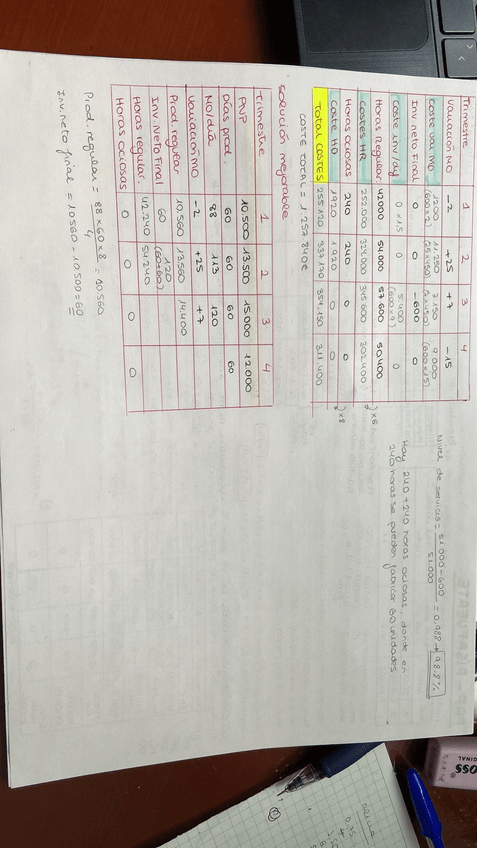 Trimestre 1 2 3 4
Variación MO -2 +25 +7 -15
Coste var MO 1200 (600x2) 11.250 (25x450) 3.150 (7x450) 9.000 (600x15)
Inv. neto Final 0 0 -600 0
Coste inv/dif 0x1,5 0 5.400 (600x9) 0
Horas Regular 42000 54.000 57.600 50.400
Costes HR 252.000 324.000 345.600 302.400 x6
Horas ociosas 240 240 0 0
Coste HO 1920 1.920 0 0 x8
TOTAL COSTES 255.120 337.170 354.150 311.400
COSTE TOTAL = 1.257.840€
Nivel de servicio = 51.000-600 / 51.000 = 0,988 → 98.8%
Hay 240+240 horas ociosas, donde en
240 horas se pueden fabricar 60 unidades
Solución mejorable
Trimestre 1 2 3 4
PAP 10.500 13.500 15.000 12.000
Días prod. 60 60 60 60
MO/día 88 113 120
Variación MO -2 +25 +7
Prod regular 10.560 13.560 14.400
Inv. Neto Final 60 120 (60+60)
Horas regular. 42.240 54.240
Horas ociosas 0 0 0 0
Prod. regular = 88 x 60 x 8 / 4 = 10.560
Inv. neto final = 10560-10.500 = 60